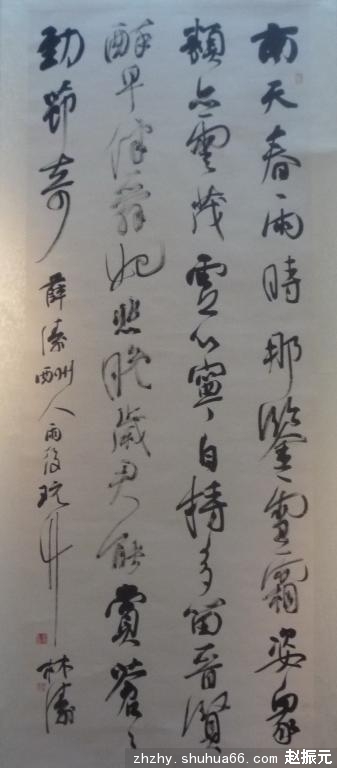 南天春雨時那鑒雪霜姿眾
類亦雲茂虛心寧自持多留晉賢
醉早伴舜妃悲晚歲君能賞蒼々
勁節奇 薛濤酬人雨後玩竹 林濤
zhzhy.shuhua66.com 赵振元